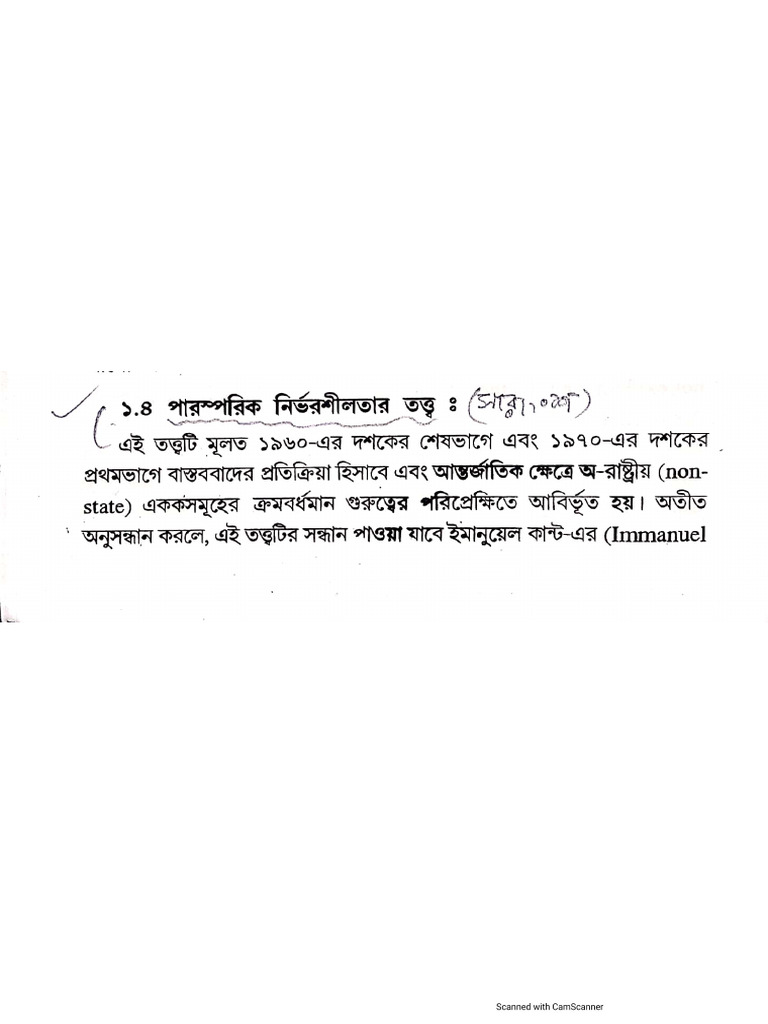 ১.৪ পারস্পরিক নির্ভরশীলতার তত্ত্ব ঃ
এই তত্ত্বটি মূলত ১৯৬০-এর দশকের শেষভাগে এবং ১৯৭০-এর দশকের
প্রথমভাগে বাস্তববাদের প্রতিক্রিয়া হিসাবে এবং আন্তর্জাতিক ক্ষেত্রে অ-রাষ্ট্রীয় (non-
state) এককসমূহের ক্রমবর্ধমান গুরুত্বের পরিপ্রেক্ষিতে আবির্ভূত হয়। অতীত
অনুসন্ধান করলে, এই তত্ত্বটির সন্ধান পাওয়া যাবে ইমানুয়েল কান্ট-এর (Immanuel
Scanned with CamScanner